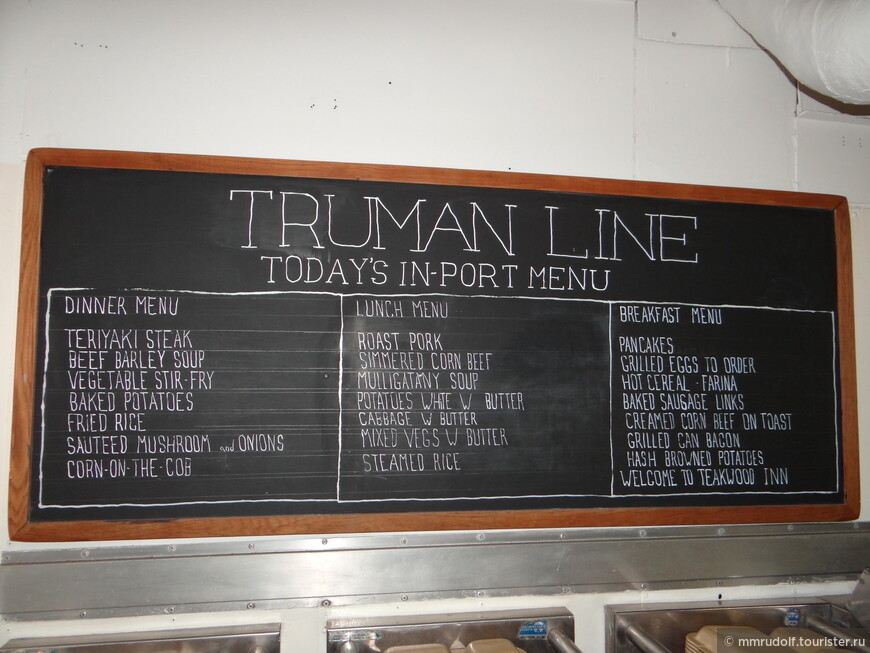 TRUMAN LINE
TODAY'S IN-PORT MENU
DINNER MENU
TERIYAKI STEAK
BEEF BARLEY SOUP
VEGETABLE STIR-FRY
BAKED POTATOES
FRIED RICE
SAUTEED MUSHROOM and ONIONS
CORN-ON-THE-COB
LUNCH MENU
ROAST PORK
SIMMERED CORN BEEF
MULLIGATANY SOUP
POTATOES WHITE W BUTTER
CABBAGE W BUTTER
MIXED VEGS W BUTTER
STEAMED RICE
BREAKFAST MENU
PANCAKES
GRILLED EGGS TO ORDER
HOT CEREAL - FARINA
BAKED SAUSAGE LINKS
CREAMED CORN BEEF ON TOAST
GRILLED CAN BACON
HASH BROWNED POTATOES
WELCOME TO TEAKWOOD INN
© mmrudolf.tourister.ru